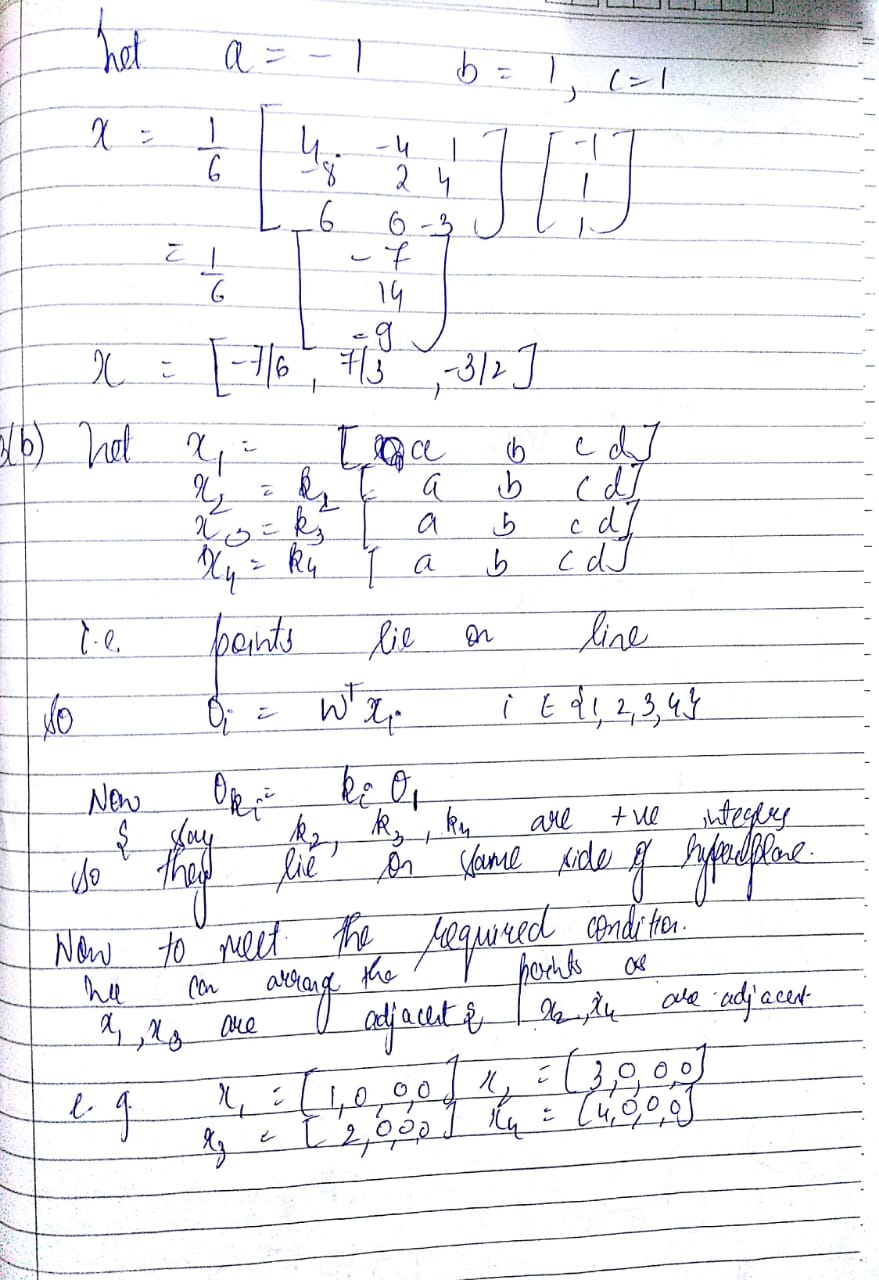 Let a = - 1 b = 1, c = 1
x = 1/6 [ 4 -4 1
-8 2 4
6 6 -3 ] [ -1
1
1 ]
= 1/6 [ -7
14
-9 ]
x = [-7/6, 7/3, -3/2]
3(b) Let x₁ = [ a b c d]
x₂ = k₂ [ a b c d]
x₃ = k₃ [ a b c d]
x₄ = k₄ [ a b c d]
i.e. points lie on line
so Oᵢ = wᵀxᵢ i ∈ {1, 2, 3, 4}
Now Okᵢ = kᵢ O₁
& say k₂, k₃, k₄ are +ve integers
so they lie on same side of hyperplane.
Now to meet the required condition.
We can arrange the points as
x₁, x₃ are adjacent & x₂, x₄ are adjacent
e.g. x₁ = [1,0,0,0] x₂ = [3,0,0,0]
x₃ = [2,0,0,0] x₄ = [4,0,0,0]